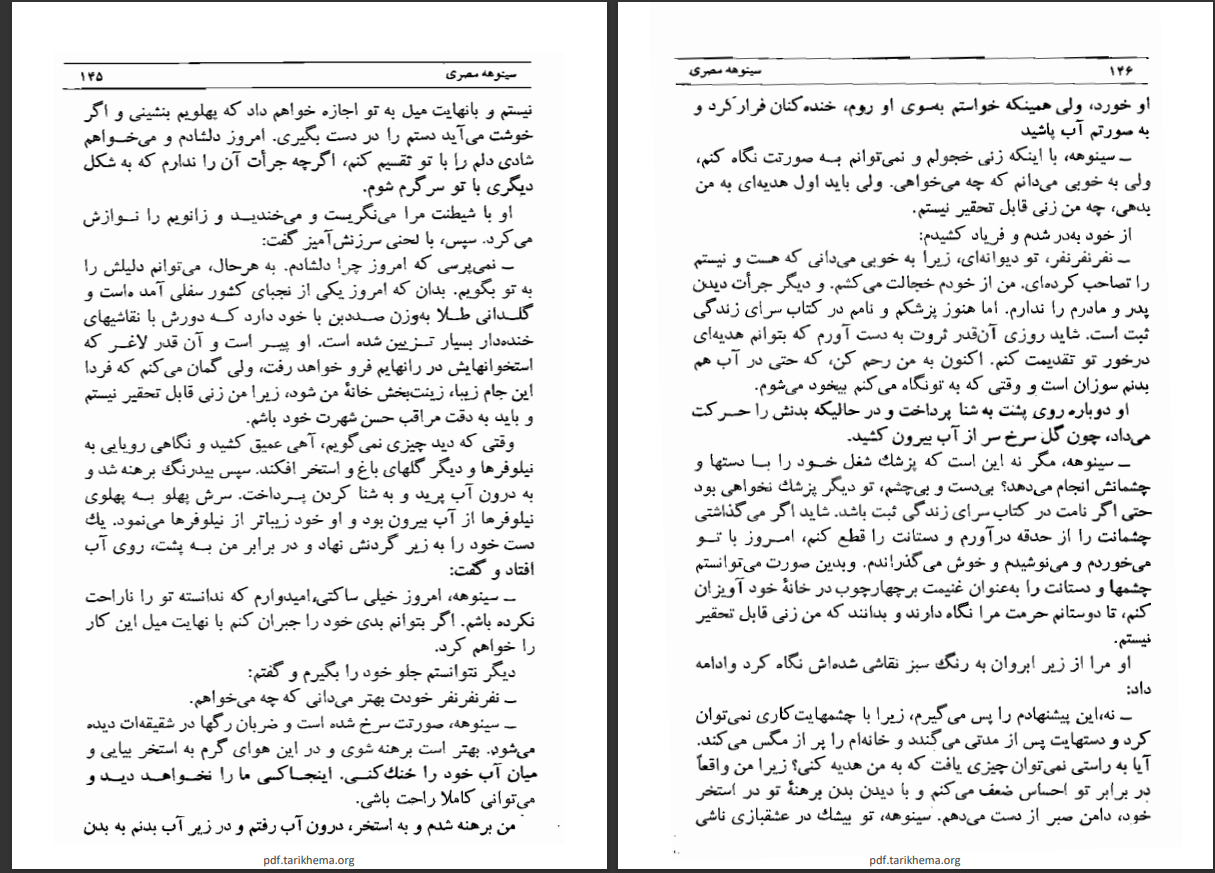 ۱۴۵ سینوهه مصری
نیستم و بانهایت میل به تو اجازه خواهم داد که پهلویم بنشینی و اگر
خوشت می‌آید دستم را در دست بگیری. امروز دلشادم و می‌خـــواهم
شادی دلم را با تو تقسیم کنم، اگرچه جرأت آن را ندارم که به شکل
دیگری با تو سرگرم شوم.
او با شیطنت مرا می‌نگریست و می‌خندیــد و زانویم را نــوازش
می‌کرد. سپس، با لحنی سرزنش‌آمیز گفت:
ــ نمی‌پرسی که امروز چرا دلشادم. به هرحال، می‌توانم دلیلش را
به تو بگویم. بدان که امروز یکی از نجبای کشور سفلی آمده‌است و
گلــدانی طــلا به‌وزن صــددبن با خود دارد کــه دورش با نقاشیهای
خنده‌دار بسیار تــزیین شده است. او پیــر است و آن قدر لاغــر که
استخوانهایش در رانهایم فرو خواهد رفت، ولی گمان می‌کنم که فردا
این جام زیبا، زینت‌بخش خانهٔ من شود، زیرا من زنی قابل تحقیر نیستم
و باید به دقت مراقب حسن شهرت خود باشم.
وقتی که دید چیزی نمی‌گویم، آهی عمیق کشید و نگاهی رویایی به
نیلوفرها و دیگر گلهای باغ و استخر افکند. سپس بیدرنگ برهنه شد و
به درون آب پرید و به شنا کردن پــرداخت. سرش پهلو بــه پهلوی
نیلوفرها از آب بیرون بود و او خود زیباتر از نیلوفرها می‌نمود. یك
دست خود را به زیر گردنش نهاد و در برابر من بــه پشت، روی آب
افتاد و گفت:
ــ سینوهه، امروز خیلی ساکتی،امیدوارم که ندانسته تو را ناراحت
نکرده باشم. اگر بتوانم بدی خود را جبران کنم با نهایت میل این کار
را خواهم کرد.
دیگر نتوانستم جلو خود را بگیرم و گفتم:
ــ نفرنفرنفر خودت بهتر می‌دانی که چه می‌خواهم.
ــ سینوهه، صورتت سرخ شده است و ضربان رگها در شقیقه‌ات دیده
می‌شود. بهتر است برهنه شوی و در این هوای گرم به استخر بیایی و
میان آب خود را خنك‌کنــی. اینجــاکسی ما را نخــواهــد دیــد و
می‌توانی کاملا راحت باشی.
من برهنه شدم و به استخر، درون آب رفتم و در زیر آب بدنم به بدن
pdf.tarikhema.org
سینوهه مصری ۱۴۶
او خورد، ولی همینکه خواستم بسوی او روم، خنده‌کنان فرار کرد و
به صورتم آب پاشید
ــ سینوهه، با اینکه زنی خجولم و نمی‌توانم بــه صورتت نگاه کنم،
ولی به خوبی می‌دانم که چه می‌خواهی. ولی باید اول هدیه‌ای به من
بدهی، چه من زنی قابل تحقیر نیستم.
از خود به‌در شدم و فریاد کشیدم:
ــ نفرنفرنفر، تو دیوانه‌ای، زیرا به خوبی می‌دانی که هست و نیستم
را تصاحب کرده‌ای. من از خودم خجالت می‌کشم. و دیگر جرأت دیدن
پدر و مادرم را ندارم. اما هنوز پزشکم و نامم در کتاب سرای زندگی
ثبت است. شاید روزی آن‌قدر ثروت به دست آورم که بتوانم هدیه‌ای
درخور تو تقدیمت کنم. اکنون به من رحم کن، که حتی در آب هم
بدنم سوزان است و وقتی که به تونگاه می‌کنم بیخود می‌شوم.
او دوباره روی پشت به شنا پرداخت و در حالیکه بدنش را حــرکت
می‌داد، چون گل سرخ سر از آب بیرون کشید.
ــ سینوهه، مگر نه این است که پزشك شغل خــود را بــا دستها و
چشمانش انجام می‌دهد؟ بی‌دست و بی‌چشم، تو دیگر پزشك نخواهی بود
حتی اگر نامت در کتاب سرای زندگی ثبت باشد. شاید اگر می‌گذاشتی
چشمانت را از حدقه درآورم و دستانت را قطع کنم، امــروز با تــو
می‌خوردم و می‌نوشیدم و خوش می‌گذراندم. وبدین صورت می‌توانستم
چشمها و دستانت را به‌عنوان غنیمت برچهارچوب در خانهٔ خود آویزان
کنم، تا دوستانم حرمت مرا نگاه دارند و بدانند که من زنی قابل تحقیر
نیستم.
او مرا از زیر ابروان به رنگ سبز نقاشی شده‌اش نگاه کرد وادامه
داد:
ــ نه،این پیشنهادم را پس می‌گیرم، زیرا با چشمهایت‌کاری نمی‌توان
کرد و دستهایت پس از مدتی می‌گندد و خانه‌ام را پر از مگس می‌کند.
آیا به راستی نمی‌توان چیزی یافت که به من هدیه کنی؟ زیرا من واقعاً
در برابر تو احساس ضعف می‌کنم و با دیدن بدن برهنهٔ تو در استخر
خود، دامن صبر از دست می‌دهم. سینوهه، تو بیشك در عشقبازی ناشی
pdf.tarikhema.org